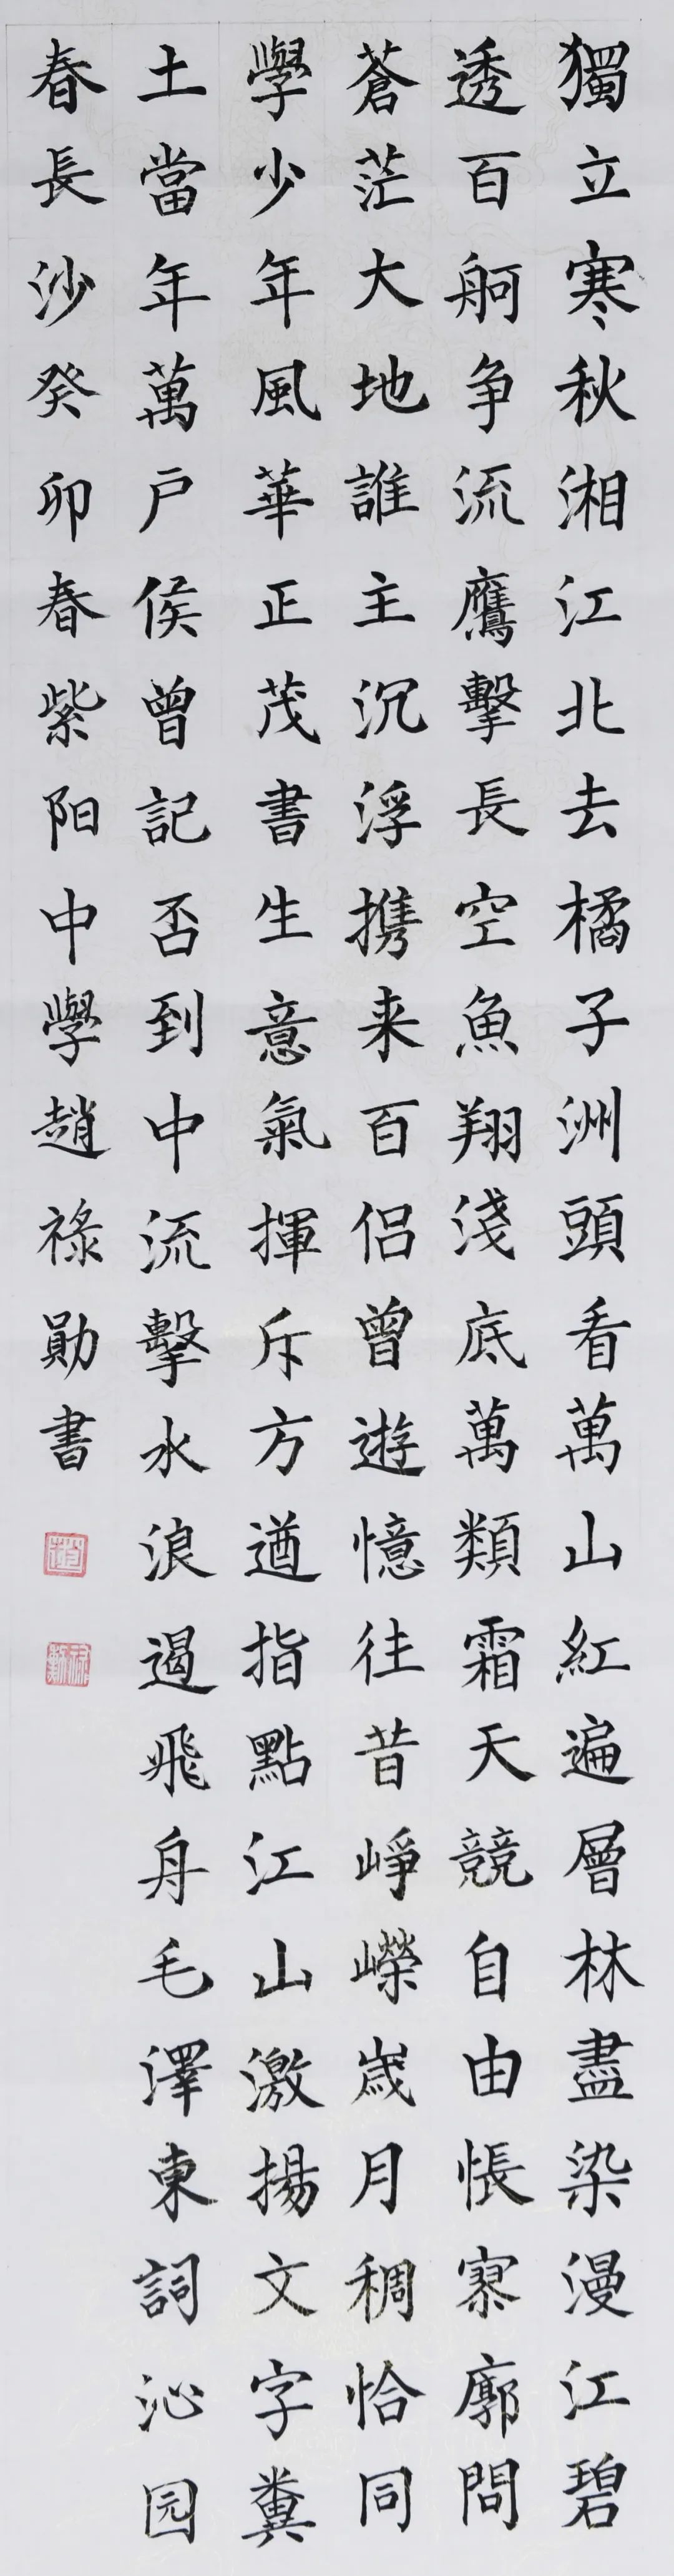 獨立寒秋湘江北去橘子洲頭看萬山紅遍層林盡染漫江碧
透百舸争流鷹擊長空魚翔淺底萬類霜天競自由悵寥廓問
蒼茫大地誰主沉浮携来百侣曾遊憶往昔崢嶸歲月稠恰同
學少年風華正茂書生意氣揮斥方遒指點江山激揚文字糞
土當年萬户侯曾記否到中流擊水浪遏飛舟毛澤東詞沁园
春長沙癸卯春紫阳中學趙祿勛書